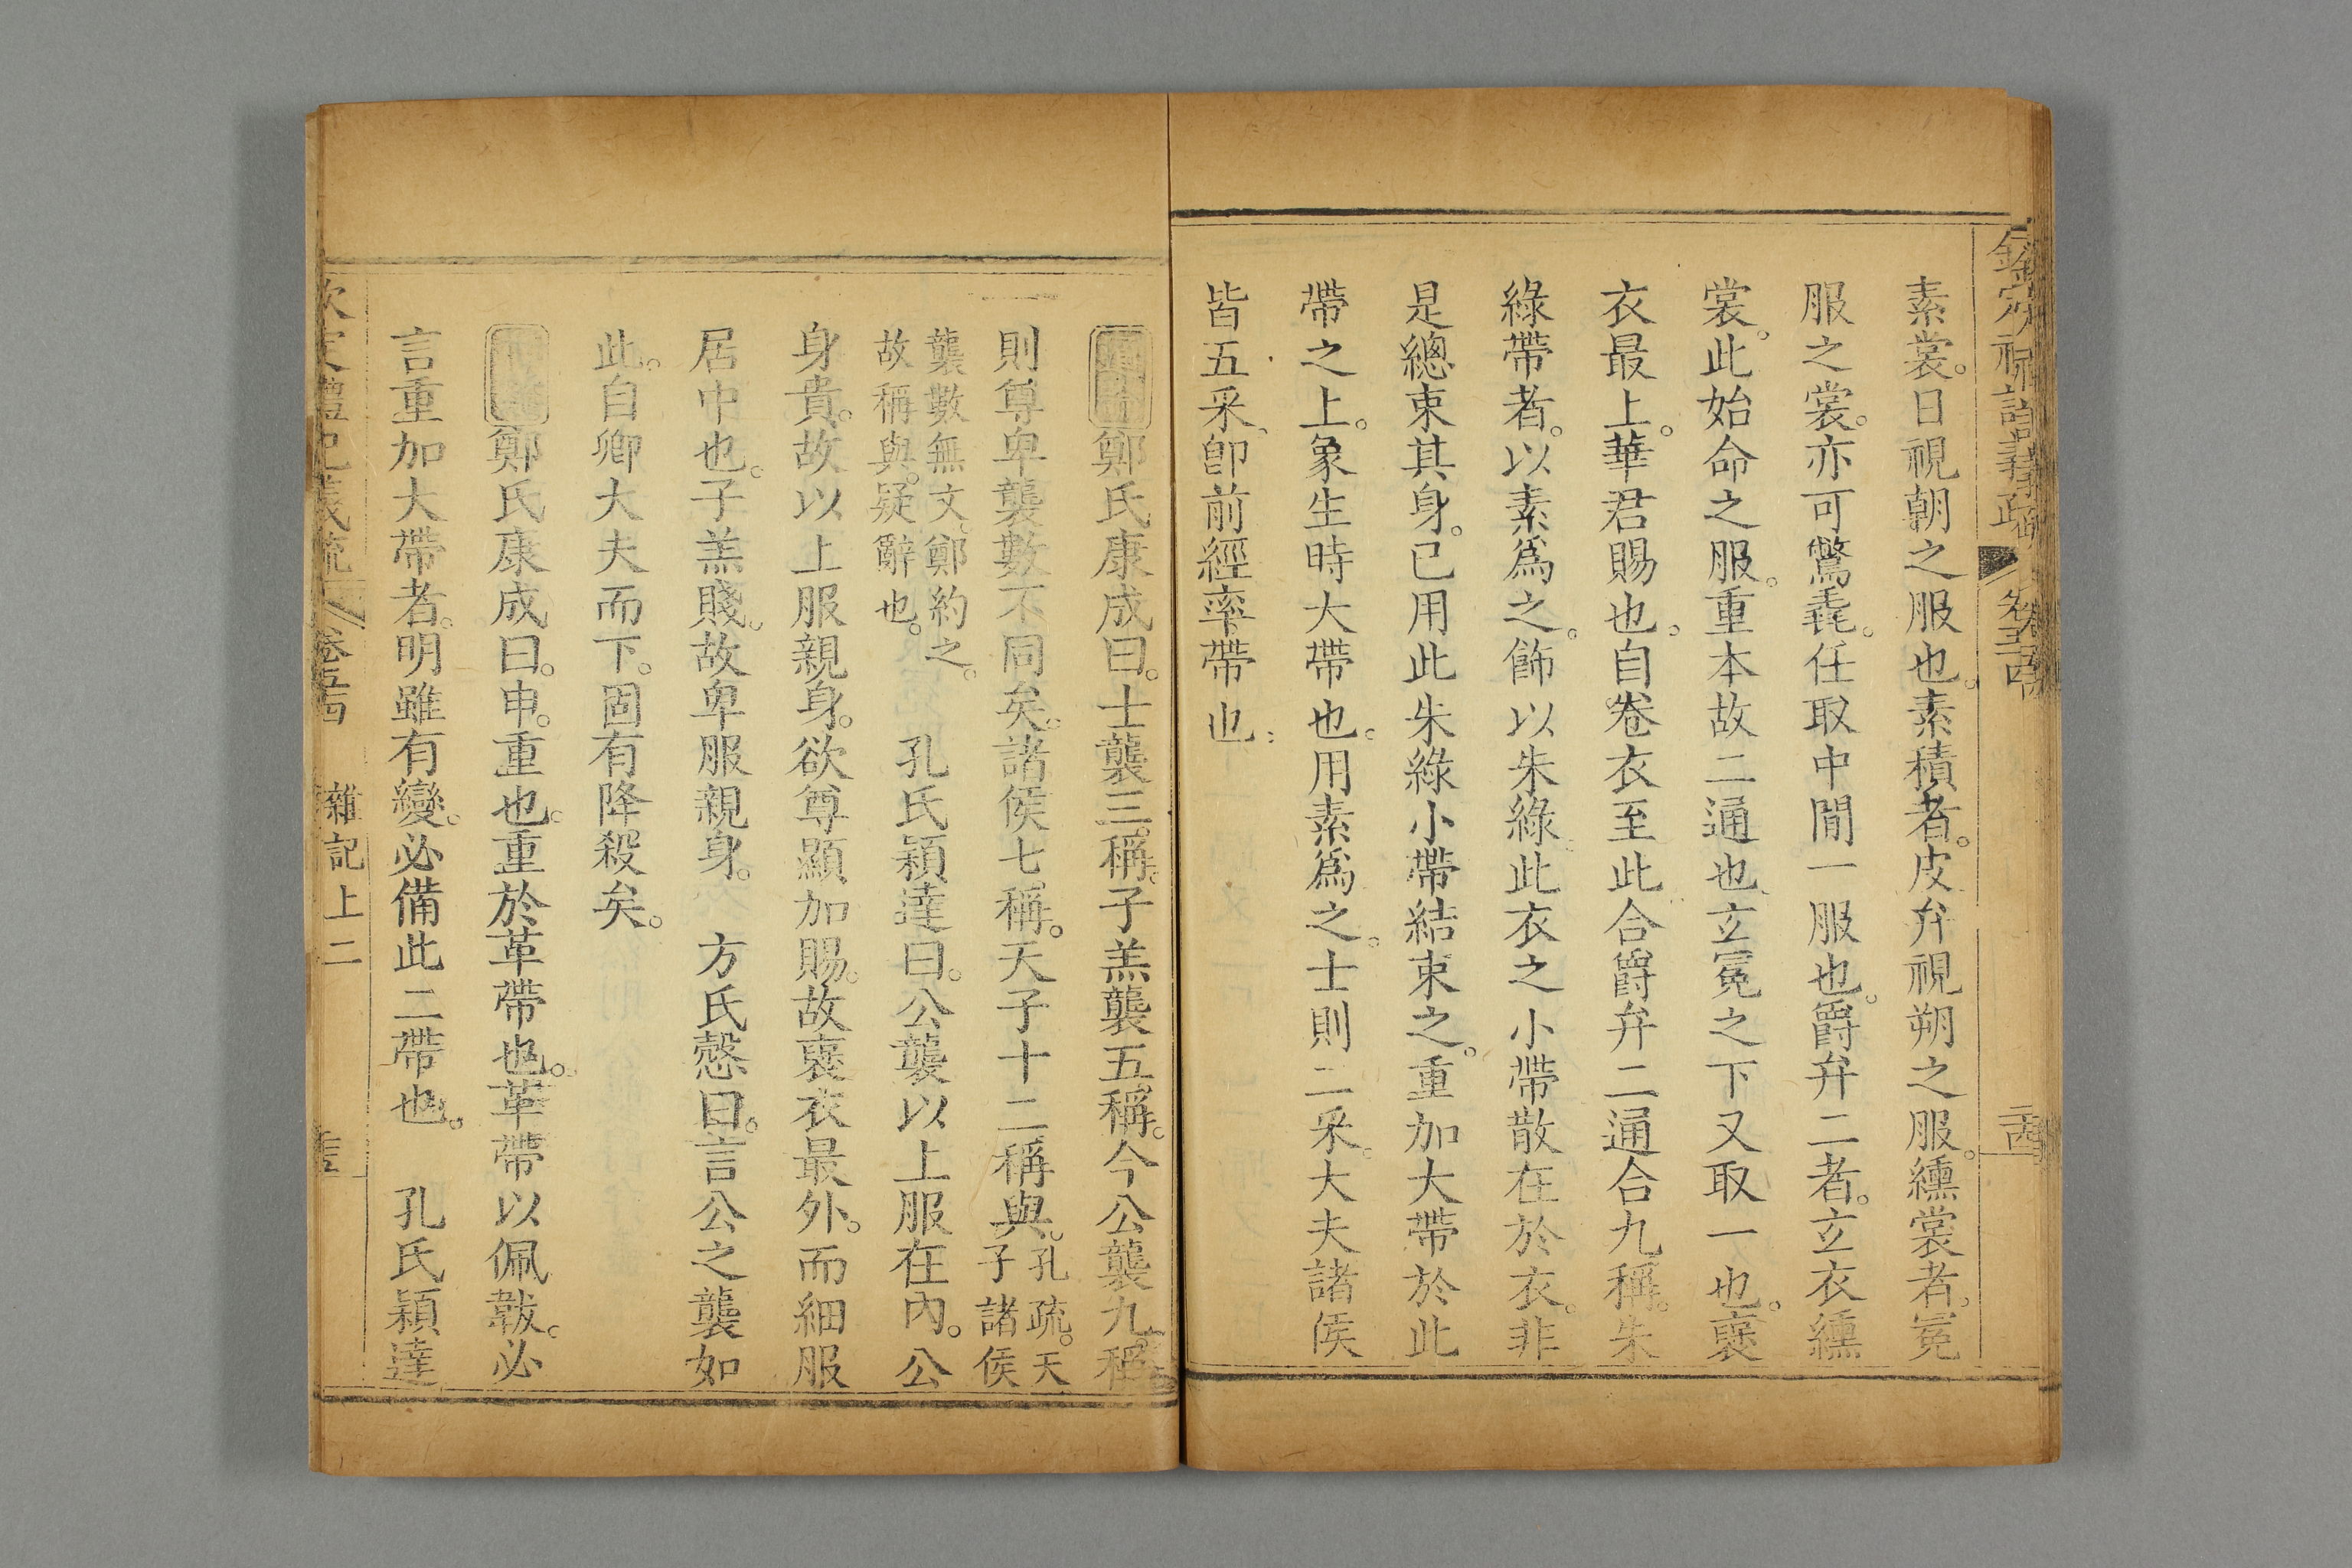 素裳。日視朝之服也。素積者。皮弁視朔之服。纁裳者。冕
服之裳。亦可鷩毳。任取中閒一服也。爵弁二者。玄衣纁
裳。此始命之服。重本故二通也、玄冕之下又取一也。襃
衣最上。華君賜也。自卷衣至此合爵弁二通合九稱。朱
綠帶者。以素爲之。飾以朱綠。此衣之小帶散在於衣。非
是總束其身。已用此朱綠小帶結束之。重加大帶於此
帶之上。象生時大帶也。用素爲之。士則二采。大夫諸侯
皆五采、卽前經率帶也。
鄭氏康成曰。士襲三稱。子羔襲五稱。今公襲九稱。
則尊卑襲數不同矣。諸侯七稱。天子十二稱與。孔疏。天
子諸侯
襲數無文。鄭約之。
故稱與。疑辭也。
孔氏穎達曰。公襲以上服在內。公
身貴。故以上服親身。欲尊顯加賜。故襃衣最外。而細服
居中也。子羔賤。故卑服親身。方氏慤曰。言公之襲如
此。自卿大夫而下。固有降殺矣。
鄭氏康成曰。申。重也。重於革帶也。革帶以佩韍。必
言重加大帶者。明雖有變。必備此二帶也。孔氏穎達
欽定禮記義疏 卷五十四 雜記上二